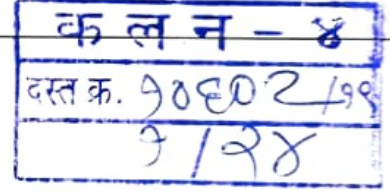 क ल न - ४
दस्त क्र. १०६०२/१९
१/२४